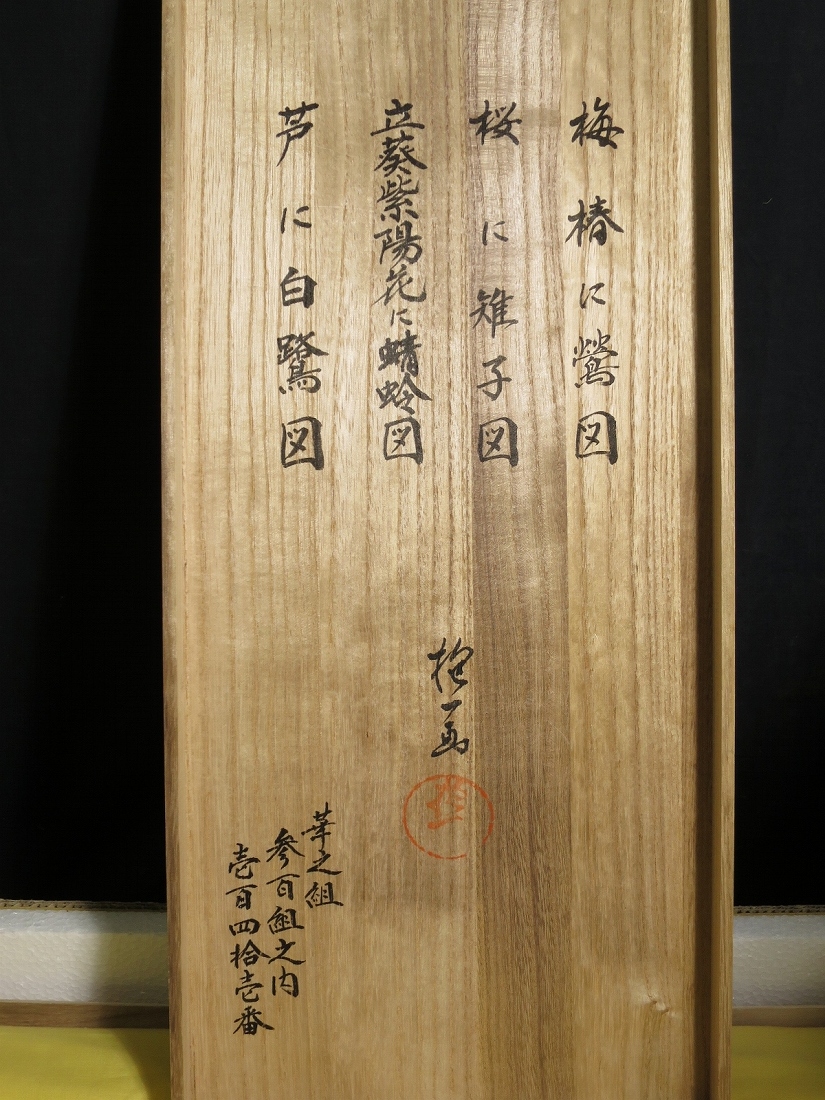 梅椿に鶯図
桜に雉子図
立葵紫陽花に蜻蛉図
芦に白鷺図
抱一画
抱一
華之組
参百組之内
壱百四拾壱番